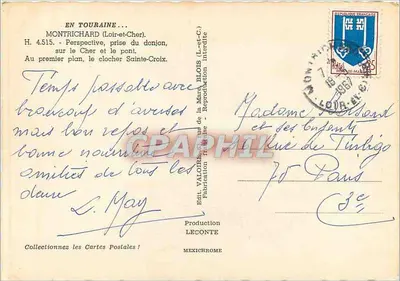 EN TOURAINE...
MONTRICHARD (Loir-et-Cher).
H. 4.515. - Perspective, prise du donjon,
sur le Cher et le pont.
Au premier plan, le clocher Sainte-Croix.
Temps passable avec
beaucoup d'averses
mais bon repos et
bonne nourriture
amitiés de tous les
deux
L. May
Edit. VALOIRE, de la Mare, BLOIS (L.-et-C.)
Reproduction interdite
Production
LECONTE
MEXICHROME
Collectionnez les Cartes Postales !
LOIR-ET-CHER
Madame
et ses Enfants
rue de Turbigo
75 Paris
3e
CPARPHIL